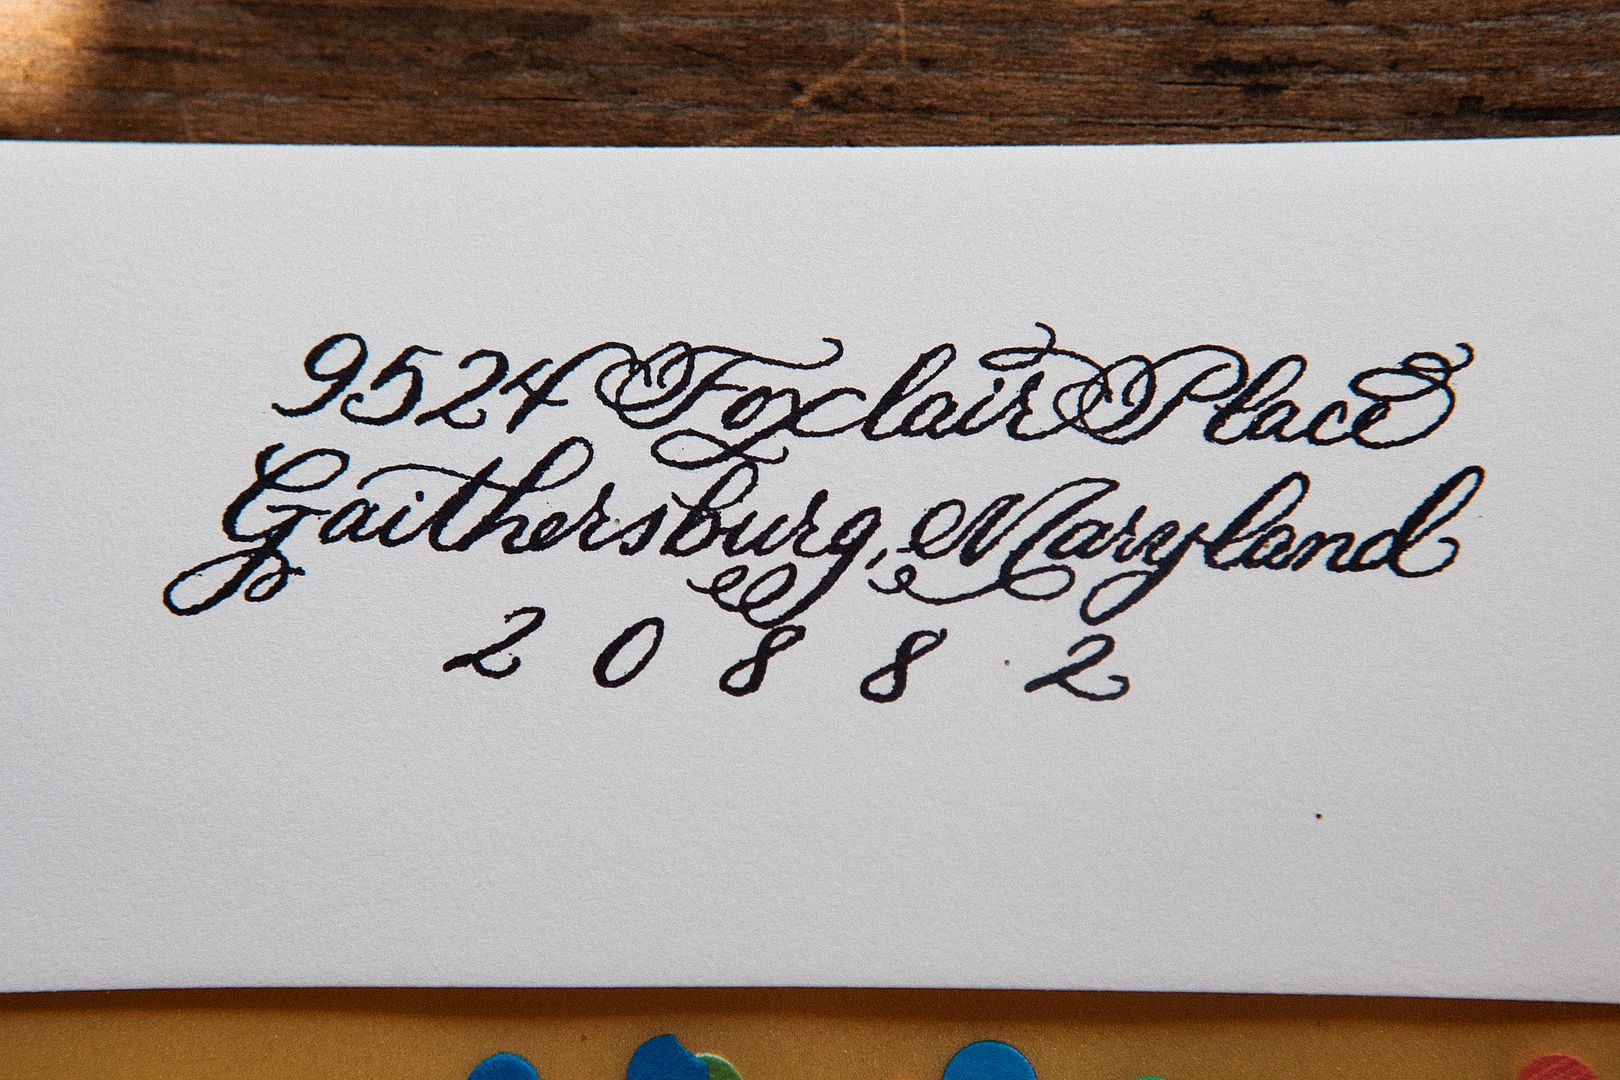 9524 Foxclair Place
Gaithersburg, Maryland
20882